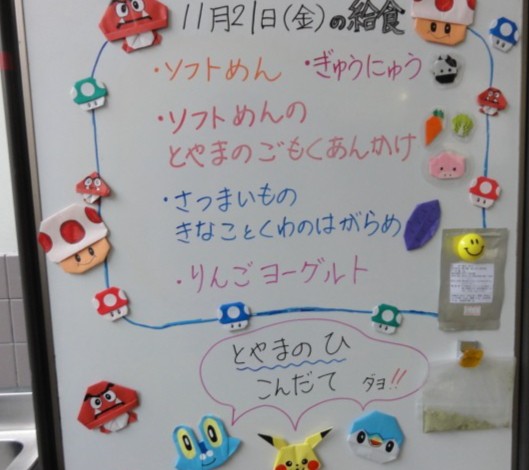 11月21日(金)の給食
・ソフトめん ・ぎゅうにゅう
・ソフトめんの
とやまのごもくあんかけ
・さつまいもの
きなことくわのはがらめ
・りんごヨーグルト
とやまの ひ
こんだて ダヨ!!